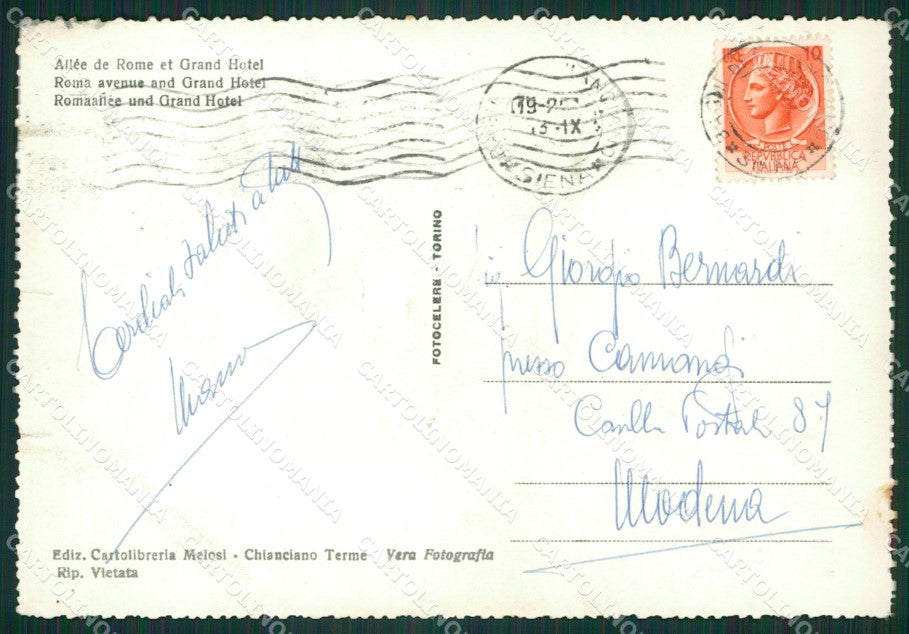 Allée de Rome et Grand Hotel
Roma avenue and Grand Hotel
Romaallee und Grand Hotel
LIRE 10
POSTE
REPVBBLICA
ITALIANA
19-2
3-IX
SIENA
SIENA
Cordiali saluti a tutti
FOTOCELERE - TORINO
Sig. Giorgio Bernardi
presso
Casella Postale 87
Modena
Ediz. Cartolibreria Melosi - Chianciano Terme Vera Fotografia
Rip. Vietata
CARTOLINOMANIA